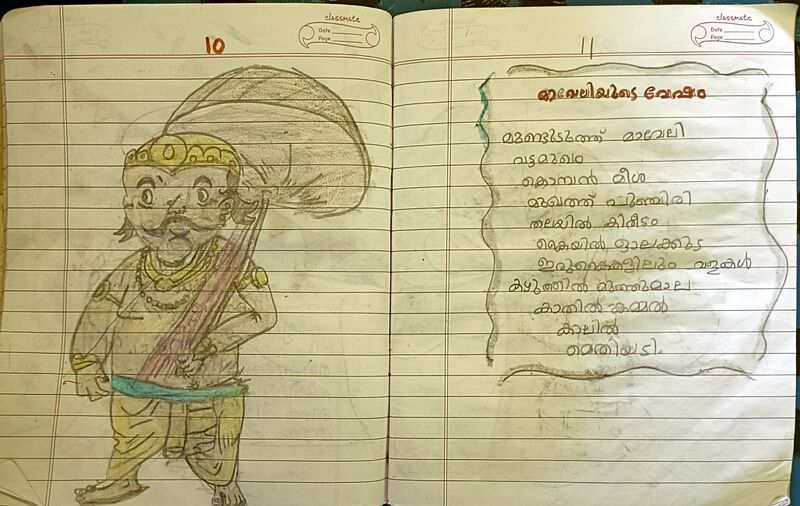 classmate
Date
Page
10
classmate
Date
Page
11
മാവേലിയുടെ വേഷം
മുണ്ടുടുത്ത് മാവേലി
വട്ടമുഖം
കൊമ്പൻ മീശ
മുഖത്ത് പുഞ്ചിരി
തലയിൽ കിരീടം
കൈയിൽ ഓലക്കുട
ഇരുകൈകളിലും വളകൾ
കഴുത്തിൽ മുത്തുമാല
കാതിൽ കമ്മൽ
കാലിൽ
മെതിയടി.